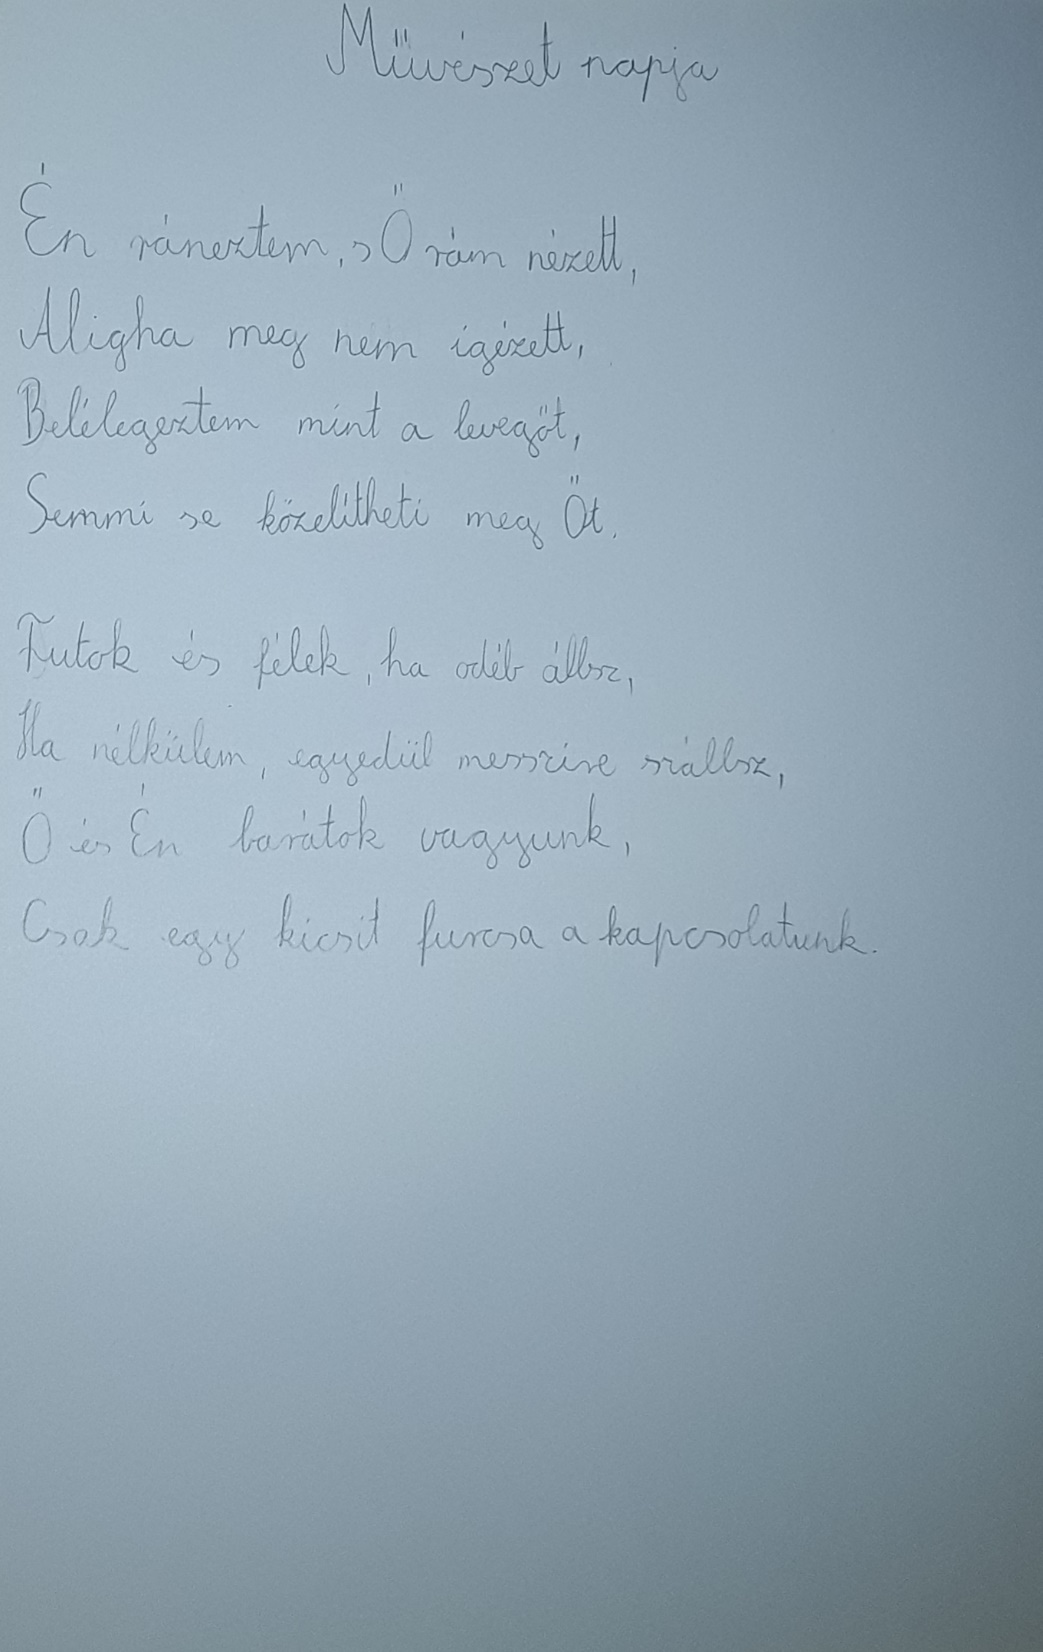 Művészet napja
Én ránéztem, s Ő rám nézett,
Aligha meg nem igézett,
Belélegeztem mint a levegőt,
Semmi se közelítheti meg Őt.
Futok és félek, ha odéb állsz,
Ha nélkülem, egyedül messzire szállsz,
Ő és Én barátok vagyunk,
Csak egy kicsit furcsa a kapcsolatunk.